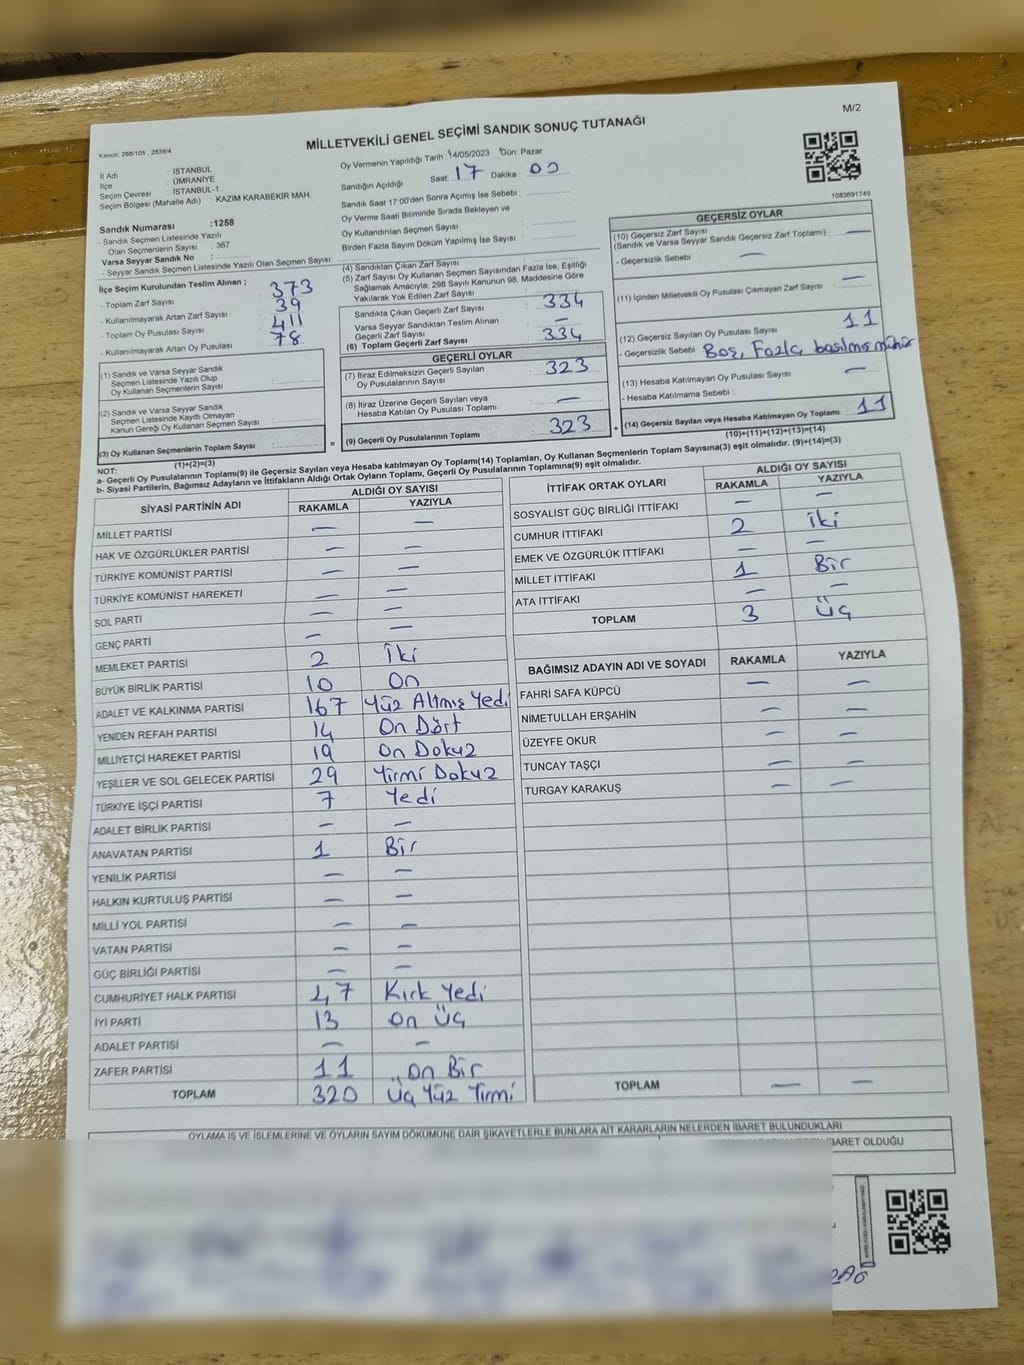 M/2
Kanun: 298/105 , 2839/4
MİLLETVEKİLİ GENEL SEÇİMİ SANDIK SONUÇ TUTANAĞI
İl Adı : İSTANBUL
İlçe : ÜMRANİYE
Seçim Çevresi : İSTANBUL-1
Seçim Bölgesi (Mahalle Adı) : KAZIM KARABEKİR MAH.
Oy Vermenin Yapıldığı Tarih : 14/05/2023 Gün: Pazar
Sandığın Açıldığı Saat: 17 Dakika : 00
Sandık Saat 17:00'den Sonra Açılmış İse Sebebi :
Oy Verme Saati Bitiminde Sırada Bekleyen ve
Oy Kullandırılan Seçmen Sayısı :
Birden Fazla Sayım Döküm Yapılmış İse Sayısı :
1083691749
Sandık Numarası : 1258
- Sandık Seçmen Listesinde Yazılı
Olan Seçmenlerin Sayısı : 367
Varsa Seyyar Sandık No :
- Seyyar Sandık Seçmen Listesinde Yazılı Olan Seçmen Sayısı:
İlçe Seçim Kurulundan Teslim Alınan ;
- Toplam Zarf Sayısı : 373
- Kullanılmayarak Artan Zarf Sayısı : 39
- Toplam Oy Pusulası Sayısı : 411
- Kullanılmayarak Artan Oy Pusulası : 78
(1) Sandık ve Varsa Seyyar Sandık
Seçmen Listesinde Yazılı Olup
Oy Kullanan Seçmenlerin Sayısı :
(2) Sandık ve Varsa Seyyar Sandık
Seçmen Listesinde Kayıtlı Olmayan
Kanun Gereği Oy Kullanan Seçmen Sayısı :
(3) Oy Kullanan Seçmenlerin Toplam Sayısı :
(1)+(2)=(3)
(4) Sandıktan Çıkan Zarf Sayısı
(5) Zarf Sayısı Oy Kullanan Seçmen Sayısından Fazla İse, Eşitliği
Sağlamak Amacıyla; 298 Sayılı Kanunun 98. Maddesine Göre
Yakılarak Yok Edilen Zarf Sayısı :
Sandıkta Çıkan Geçerli Zarf Sayısı : 334
Varsa Seyyar Sandıktan Teslim Alınan
Geçerli Zarf Sayısı : —
(6) Toplam Geçerli Zarf Sayısı : 334
GEÇERLİ OYLAR
(7) İtiraz Edilmeksizin Geçerli Sayılan
Oy Pusulalarının Sayısı : 323
(8) İtiraz Üzerine Geçerli Sayılan veya
Hesaba Katılan Oy Pusulası Toplamı : —
= (9) Geçerli Oy Pusulalarının Toplamı : 323
GEÇERSİZ OYLAR
(10) Geçersiz Zarf Sayısı
(Sandık ve Varsa Seyyar Sandık Geçersiz Zarf Toplamı) : —
- Geçersizlik Sebebi : —
(11) İçinden Milletvekili Oy Pusulası Çıkmayan Zarf Sayısı : —
(12) Geçersiz Sayılan Oy Pusulası Sayısı : 11
- Geçersizlik Sebebi : Boş, Fazla basılmış mühür
(13) Hesaba Katılmayan Oy Pusulası Sayısı : —
- Hesaba Katılmama Sebebi :
+ (14) Geçersiz Sayılan veya Hesaba Katılmayan Oy Toplamı : 11
(10)+(11)+(12)+(13)=(14)
NOT:
a- Geçerli Oy Pusulalarının Toplamı(9) ile Geçersiz Sayılan veya Hesaba katılmayan Oy Toplamı(14) Toplamları, Oy Kullanan Seçmenlerin Toplam Sayısına(3) eşit olmalıdır. (9)+(14)=(3)
b- Siyasi Partilerin, Bağımsız Adayların ve İttifakların Aldığı Ortak Oyların Toplamı, Geçerli Oy Pusulalarının Toplamına(9) eşit olmalıdır.
SİYASİ PARTİNİN ADI ALDIĞI OY SAYISI
RAKAMLA YAZIYLA
MİLLET PARTİSİ — —
HAK VE ÖZGÜRLÜKLER PARTİSİ — —
TÜRKİYE KOMÜNİST PARTİSİ — —
TÜRKİYE KOMÜNİST HAREKETİ — —
SOL PARTİ — —
GENÇ PARTİ — —
MEMLEKET PARTİSİ 2 İki
BÜYÜK BİRLİK PARTİSİ 10 On
ADALET VE KALKINMA PARTİSİ 167 Yüz Altmış Yedi
YENİDEN REFAH PARTİSİ 14 On Dört
MİLLİYETÇİ HAREKET PARTİSİ 19 On Dokuz
YEŞİLLER VE SOL GELECEK PARTİSİ 29 Yirmi Dokuz
TÜRKİYE İŞÇİ PARTİSİ 7 Yedi
ADALET BİRLİK PARTİSİ — —
ANAVATAN PARTİSİ 1 Bir
YENİLİK PARTİSİ — —
HALKIN KURTULUŞ PARTİSİ — —
MİLLİ YOL PARTİSİ — —
VATAN PARTİSİ — —
GÜÇ BİRLİĞİ PARTİSİ — —
CUMHURİYET HALK PARTİSİ 47 Kırk Yedi
İYİ PARTİ 13 On Üç
ADALET PARTİSİ — —
ZAFER PARTİSİ 11 On Bir
TOPLAM 320 Üç Yüz Yirmi
İTTİFAK ORTAK OYLARI ALDIĞI OY SAYISI
RAKAMLA YAZIYLA
SOSYALİST GÜÇ BİRLİĞİ İTTİFAKI — —
CUMHUR İTTİFAKI 2 İki
EMEK VE ÖZGÜRLÜK İTTİFAKI — —
MİLLET İTTİFAKI 1 Bir
ATA İTTİFAKI — —
TOPLAM 3 Üç
BAĞIMSIZ ADAYIN ADI VE SOYADI RAKAMLA YAZIYLA
FAHRİ SAFA KÜPCÜ — —
NİMETULLAH ERŞAHİN — —
ÜZEYFE OKUR — —
TUNCAY TAŞÇI — —
TURGAY KARAKUŞ — —
TOPLAM — —
OYLAMA İŞ VE İŞLEMLERİNE VE OYLARIN SAYIM DÖKÜMÜNE DAİR ŞİKAYETLERLE BUNLARA AİT KARARLARIN NELERDEN İBARET BULUNDUKLARI
İBARET OLDUĞU